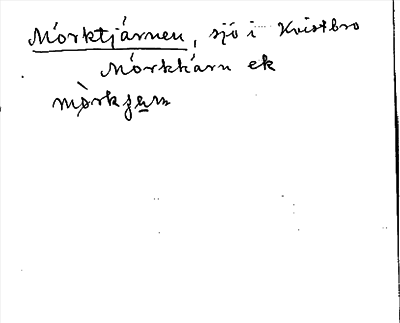 Mörktjärnen, sjö i Kvistbro
Mörkkärn ek
mò̩rkjąrn